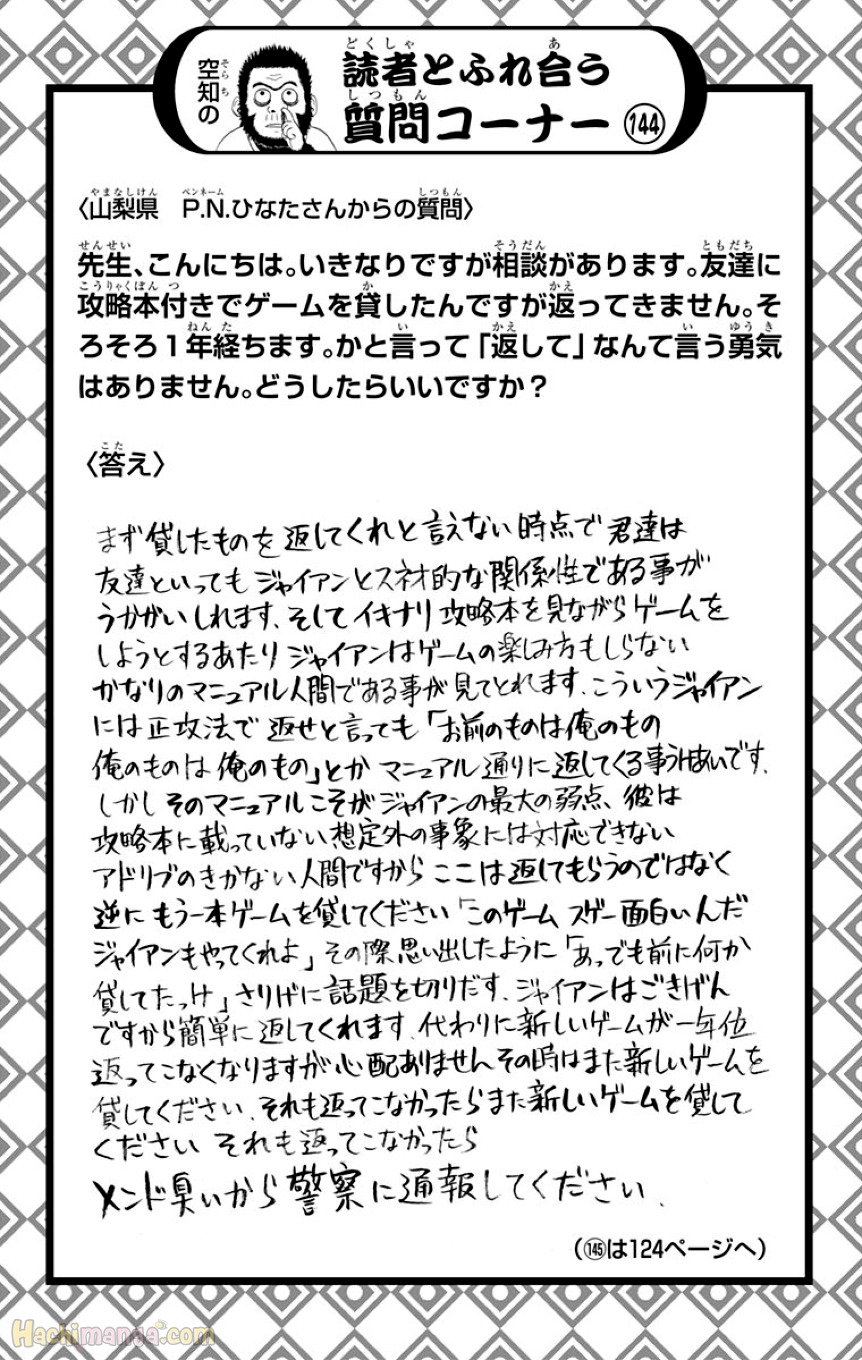 空知の
読者とふれ合う
質問コーナー 144
〈山梨県　P.N.ひなたさんからの質問〉
先生、こんにちは。いきなりですが相談があります。友達に
攻略本付きでゲームを貸したんですが返ってきません。そ
ろそろ1年経ちます。かと言って「返して」なんて言う勇気
はありません。どうしたらいいですか？
〈答え〉
まず貸したものを返してくれと言えない時点で君達は
友達といってもジャイアンとスネオ的な関係性である事が
うかがいしれます、そしてイキナリ攻略本を見ながらゲームを
しようとするあたりジャイアンはゲームの楽しみ方もしらない
かなりのマニュアル人間である事が見てとれます、こういうジャイアン
には正攻法で返せと言っても「お前のものは俺のもの
俺のものは俺のもの」とかマニュアル通りに返してくる事うけあいです、
しかしそのマニュアルこそがジャイアンの最大の弱点、彼は
攻略本に載っていない想定外の事象には対応できない
アドリブのきかない人間ですからここは返してもらうのではなく
逆にもう一本ゲームを貸してください「このゲームスゲー面白いんだ
ジャイアンもやってくれよ」その際思い出したように「あっでも前に何か
貸してたっけ」さりげに話題を切りだす、ジャイアンはごきげん
ですから簡単に返してくれます、代わりに新しいゲームが一年位
返ってこなくなりますが心配ありませんその時はまた新しいゲームを
貸してください、それも返ってこなかったらまた新しいゲームを貸して
くださいそれも返ってこなかったら
メンド臭いから警察に通報してください、
（145は124ページへ）
Hachimanga.com